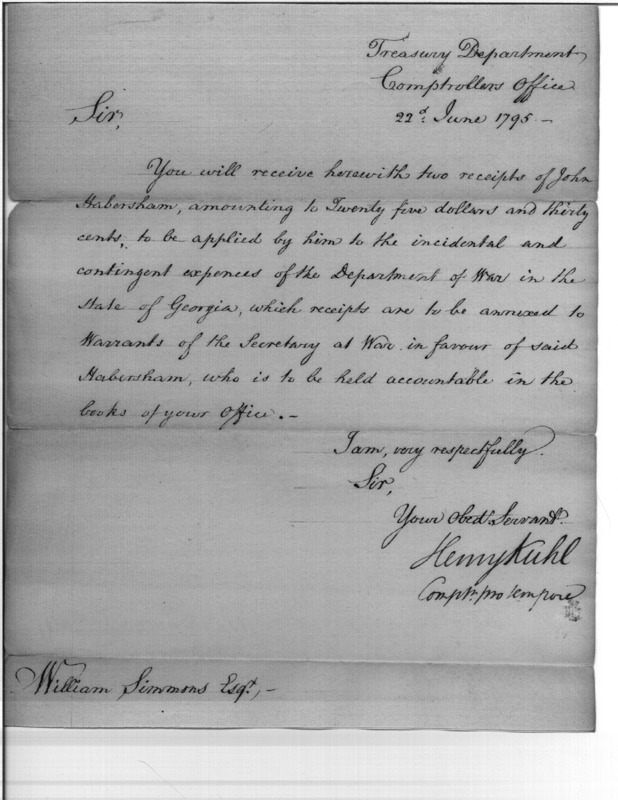 Treasury Department
Comptrollers Office
22d. June 1795 —
Sir,
You will receive herewith two receipts of John
Habersham, amounting to Twenty five dollars and thirty
cents, to be applied by him to the incidental and
contingent expences of the Department of War in the
State of Georgia, which receipts are to be annexed to
Warrants of the Secretary at War in favour of said
Habersham, who is to be held accountable in the
books of your Office. —
I am, very respectfully.
Sir,
Your Obedt. Servant.
Henry Kuhl
Comptr. pro tempore
William Simmons Esqr, —